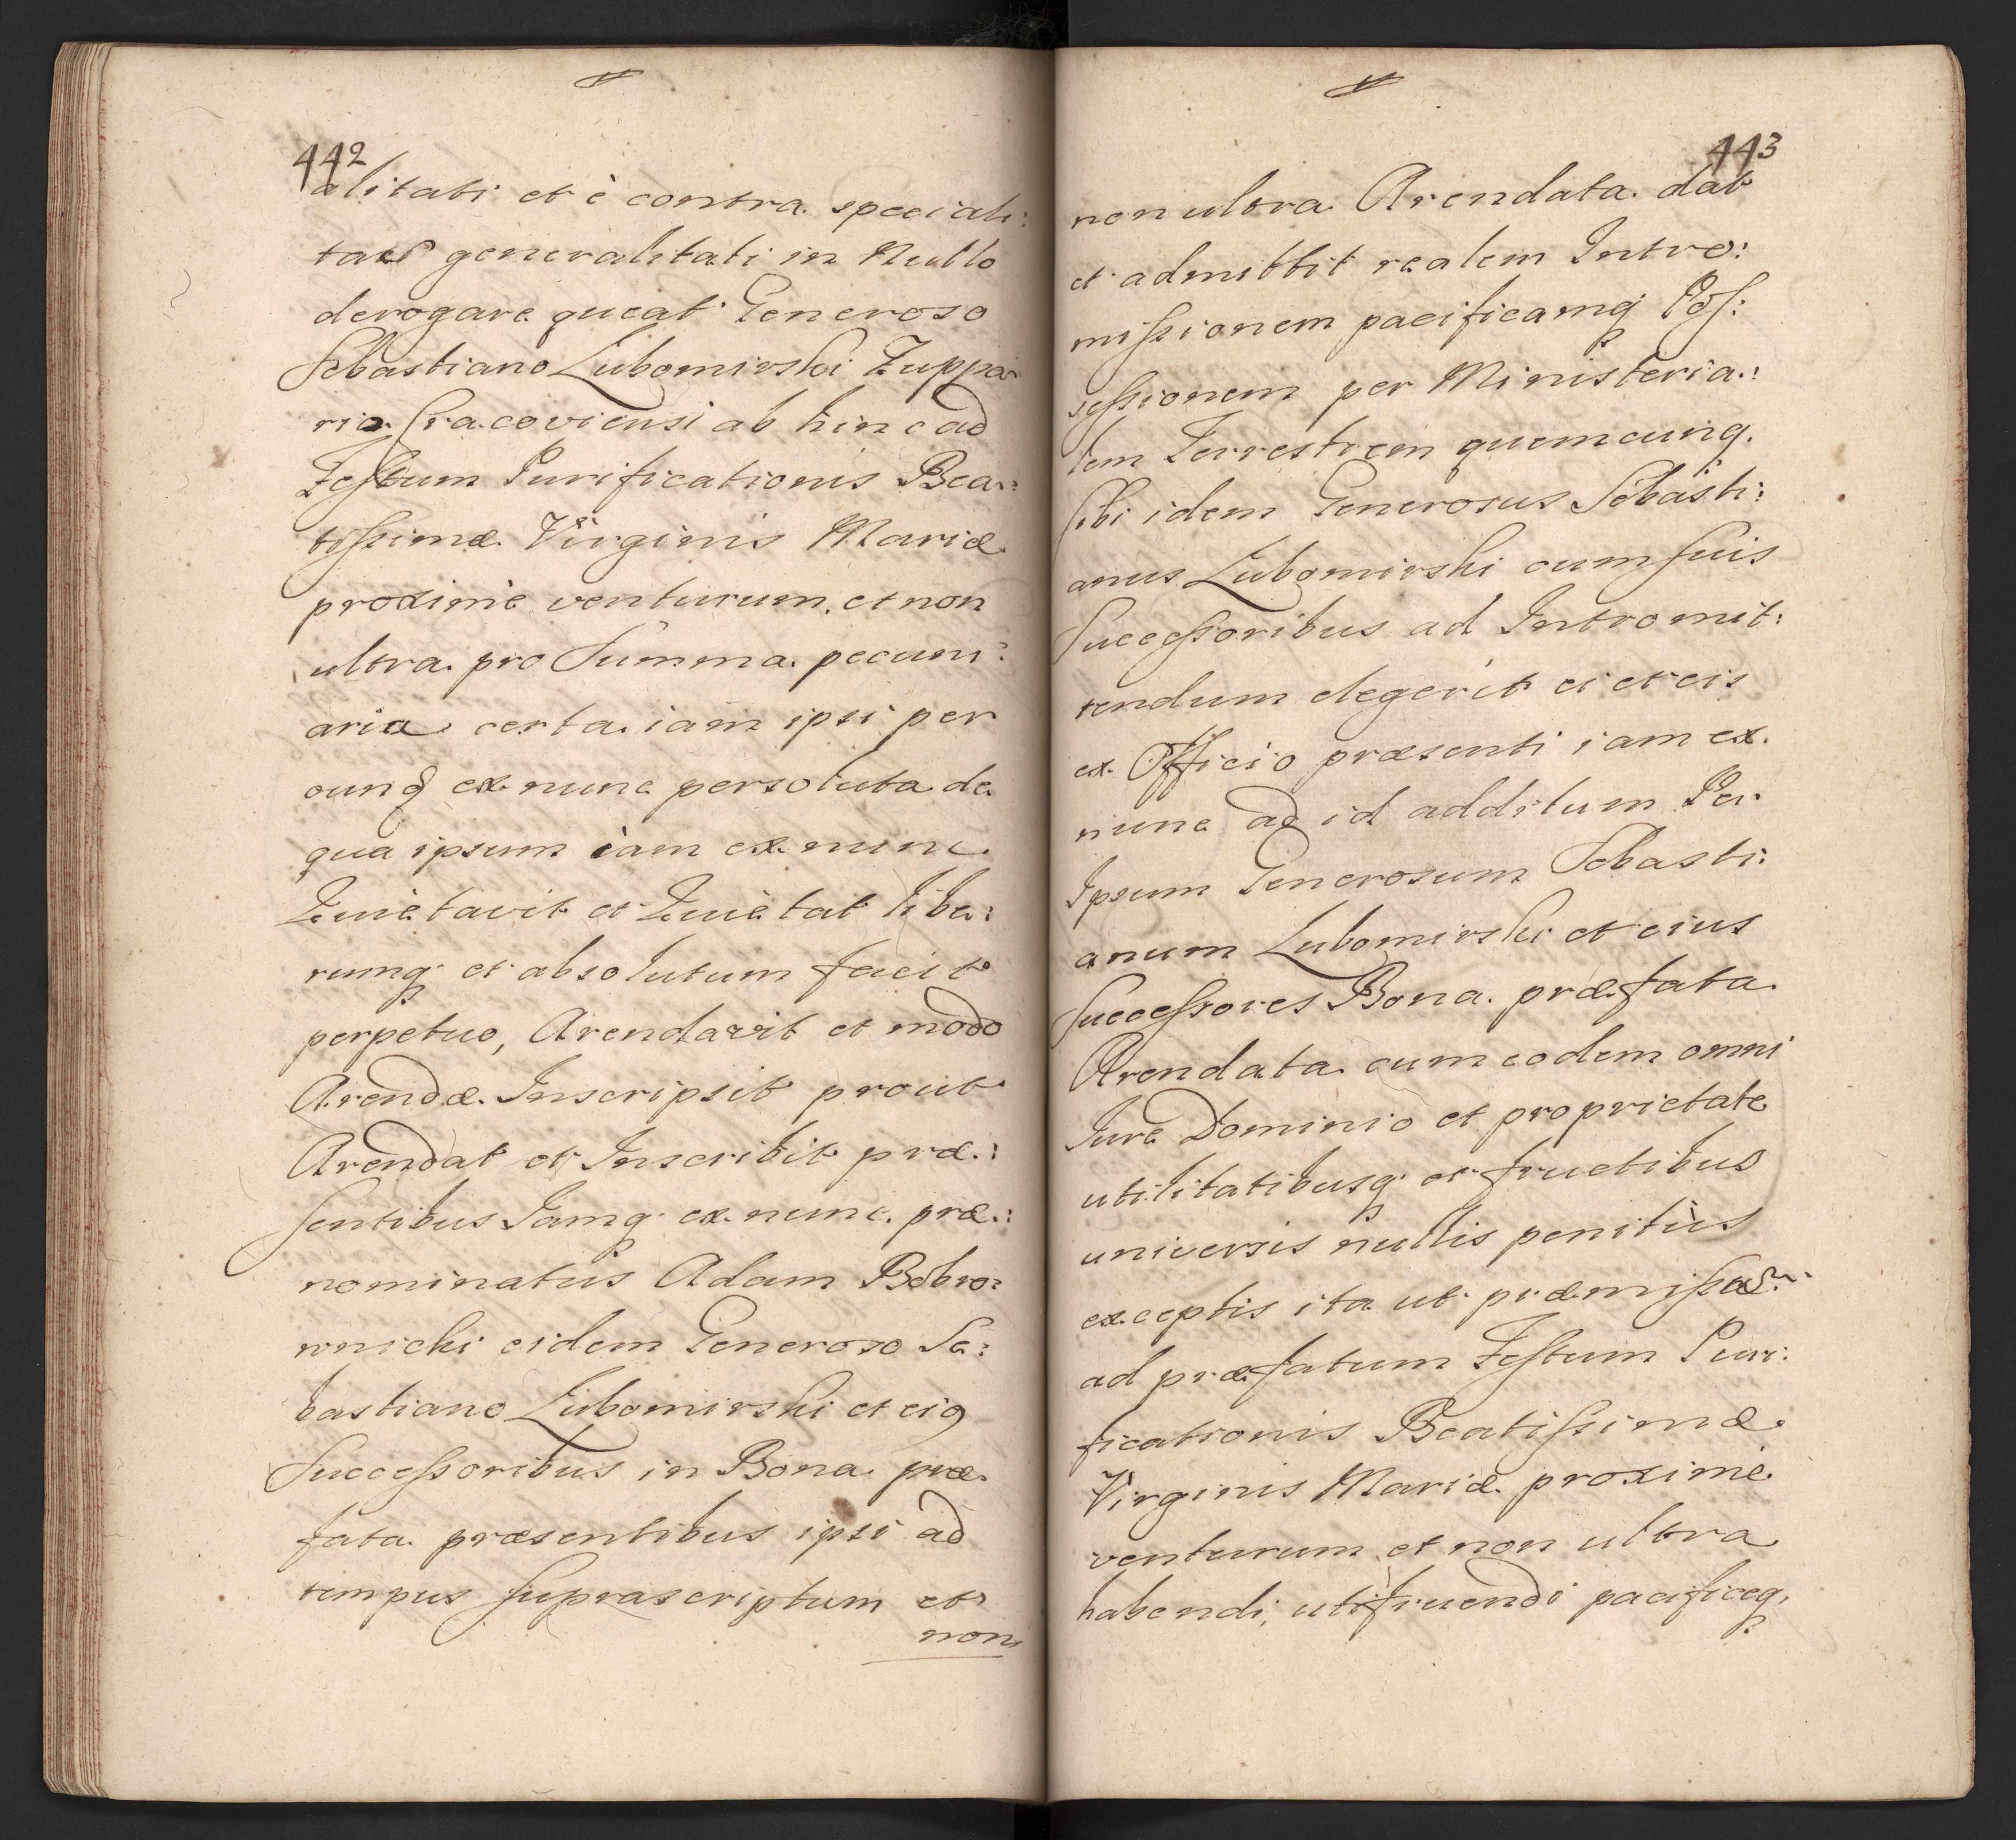 442
alitati et è contra speciali:
tas generalitati in Nullo
derogare queat Generoso
Sebastiano Lubomirski Zuppa:
rio Cracoviensi ab hinc ad
Festum Purificationis Bea:
tissimæ Virginis Mariæ
proximè venturum et non
ultra pro Summa pecuni:
aria certa iam ipsi per
eunq ex nunc persoluta de
qua ipsum iam ex nunc
Quietavit et Quietat libe:
rumq et absolutum facit
perpetuo, Arendavit et modo
Arendæ Inscripsit prout
Arendat et Inscribit præ:
sentibus Iamq ex nunc præ:
nominatus Adam Bobro:
wnicki eidem Generoso Se:
bastiano Lubomirski et eig
Successoribus in Bona præ
fata præsentibus ipsi ad
tempus suprascriptum et
non
443
non ultra Arendata dat
et admittit realem Intro:
missionem pacificamq Pos:
sessionem per Ministeria:
lem Terrestrem quemcunq
sibi idem Generosus Sebasti:
anus Lubomirski cum suis
Successoribus ad Intromit:
tendum elegerit ei et eis
ex Officio præsenti iam ex
nunc ad id additum Per
Ipsum Generosum Sebasti:
anum Lubomirski et eius
Successores Bona præfata
Arendata cum eodem omni
Iure Dominio et proprietate
utilitatibusq et fructibus
universis nullis penitùs
exceptis ita ut præmissa
ad præfatum Festum Puri:
ficationis Beatissimæ
Virginis Mariæ proximè
venturum et non ultra
habendi, utifruendi pacificeq,